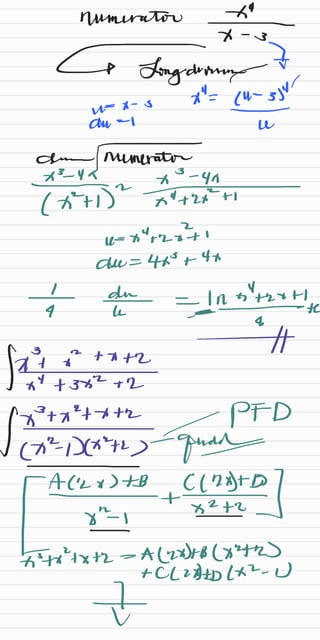 numerator x⁴ / x - 3
Long division
u = x - 3   x⁴ = (u - 3)⁴ / u
du = 1
Numerator
x³ - 4x / (x² + 1)²   x³ - 4x / x⁴ + 2x² + 1
u = x⁴ + 2x² + 1
du = 4x³ + 4x
1/4   du/u   = ln x⁴ + 2x + 1 / 4 + c
∫ x³ + x² + x + 2 / x⁴ + 3x² + 2
∫ x³ + x² + x + 2 / (x² - 1)(x² + 2)   PFD
quad
[ A(2x) + B / x² - 1 + C(2x) + D / x² + 2 ]
x³ + x² + x + 2 = A(2x) + B (x² + 2)
+ C(2x) + D (x² - 1)